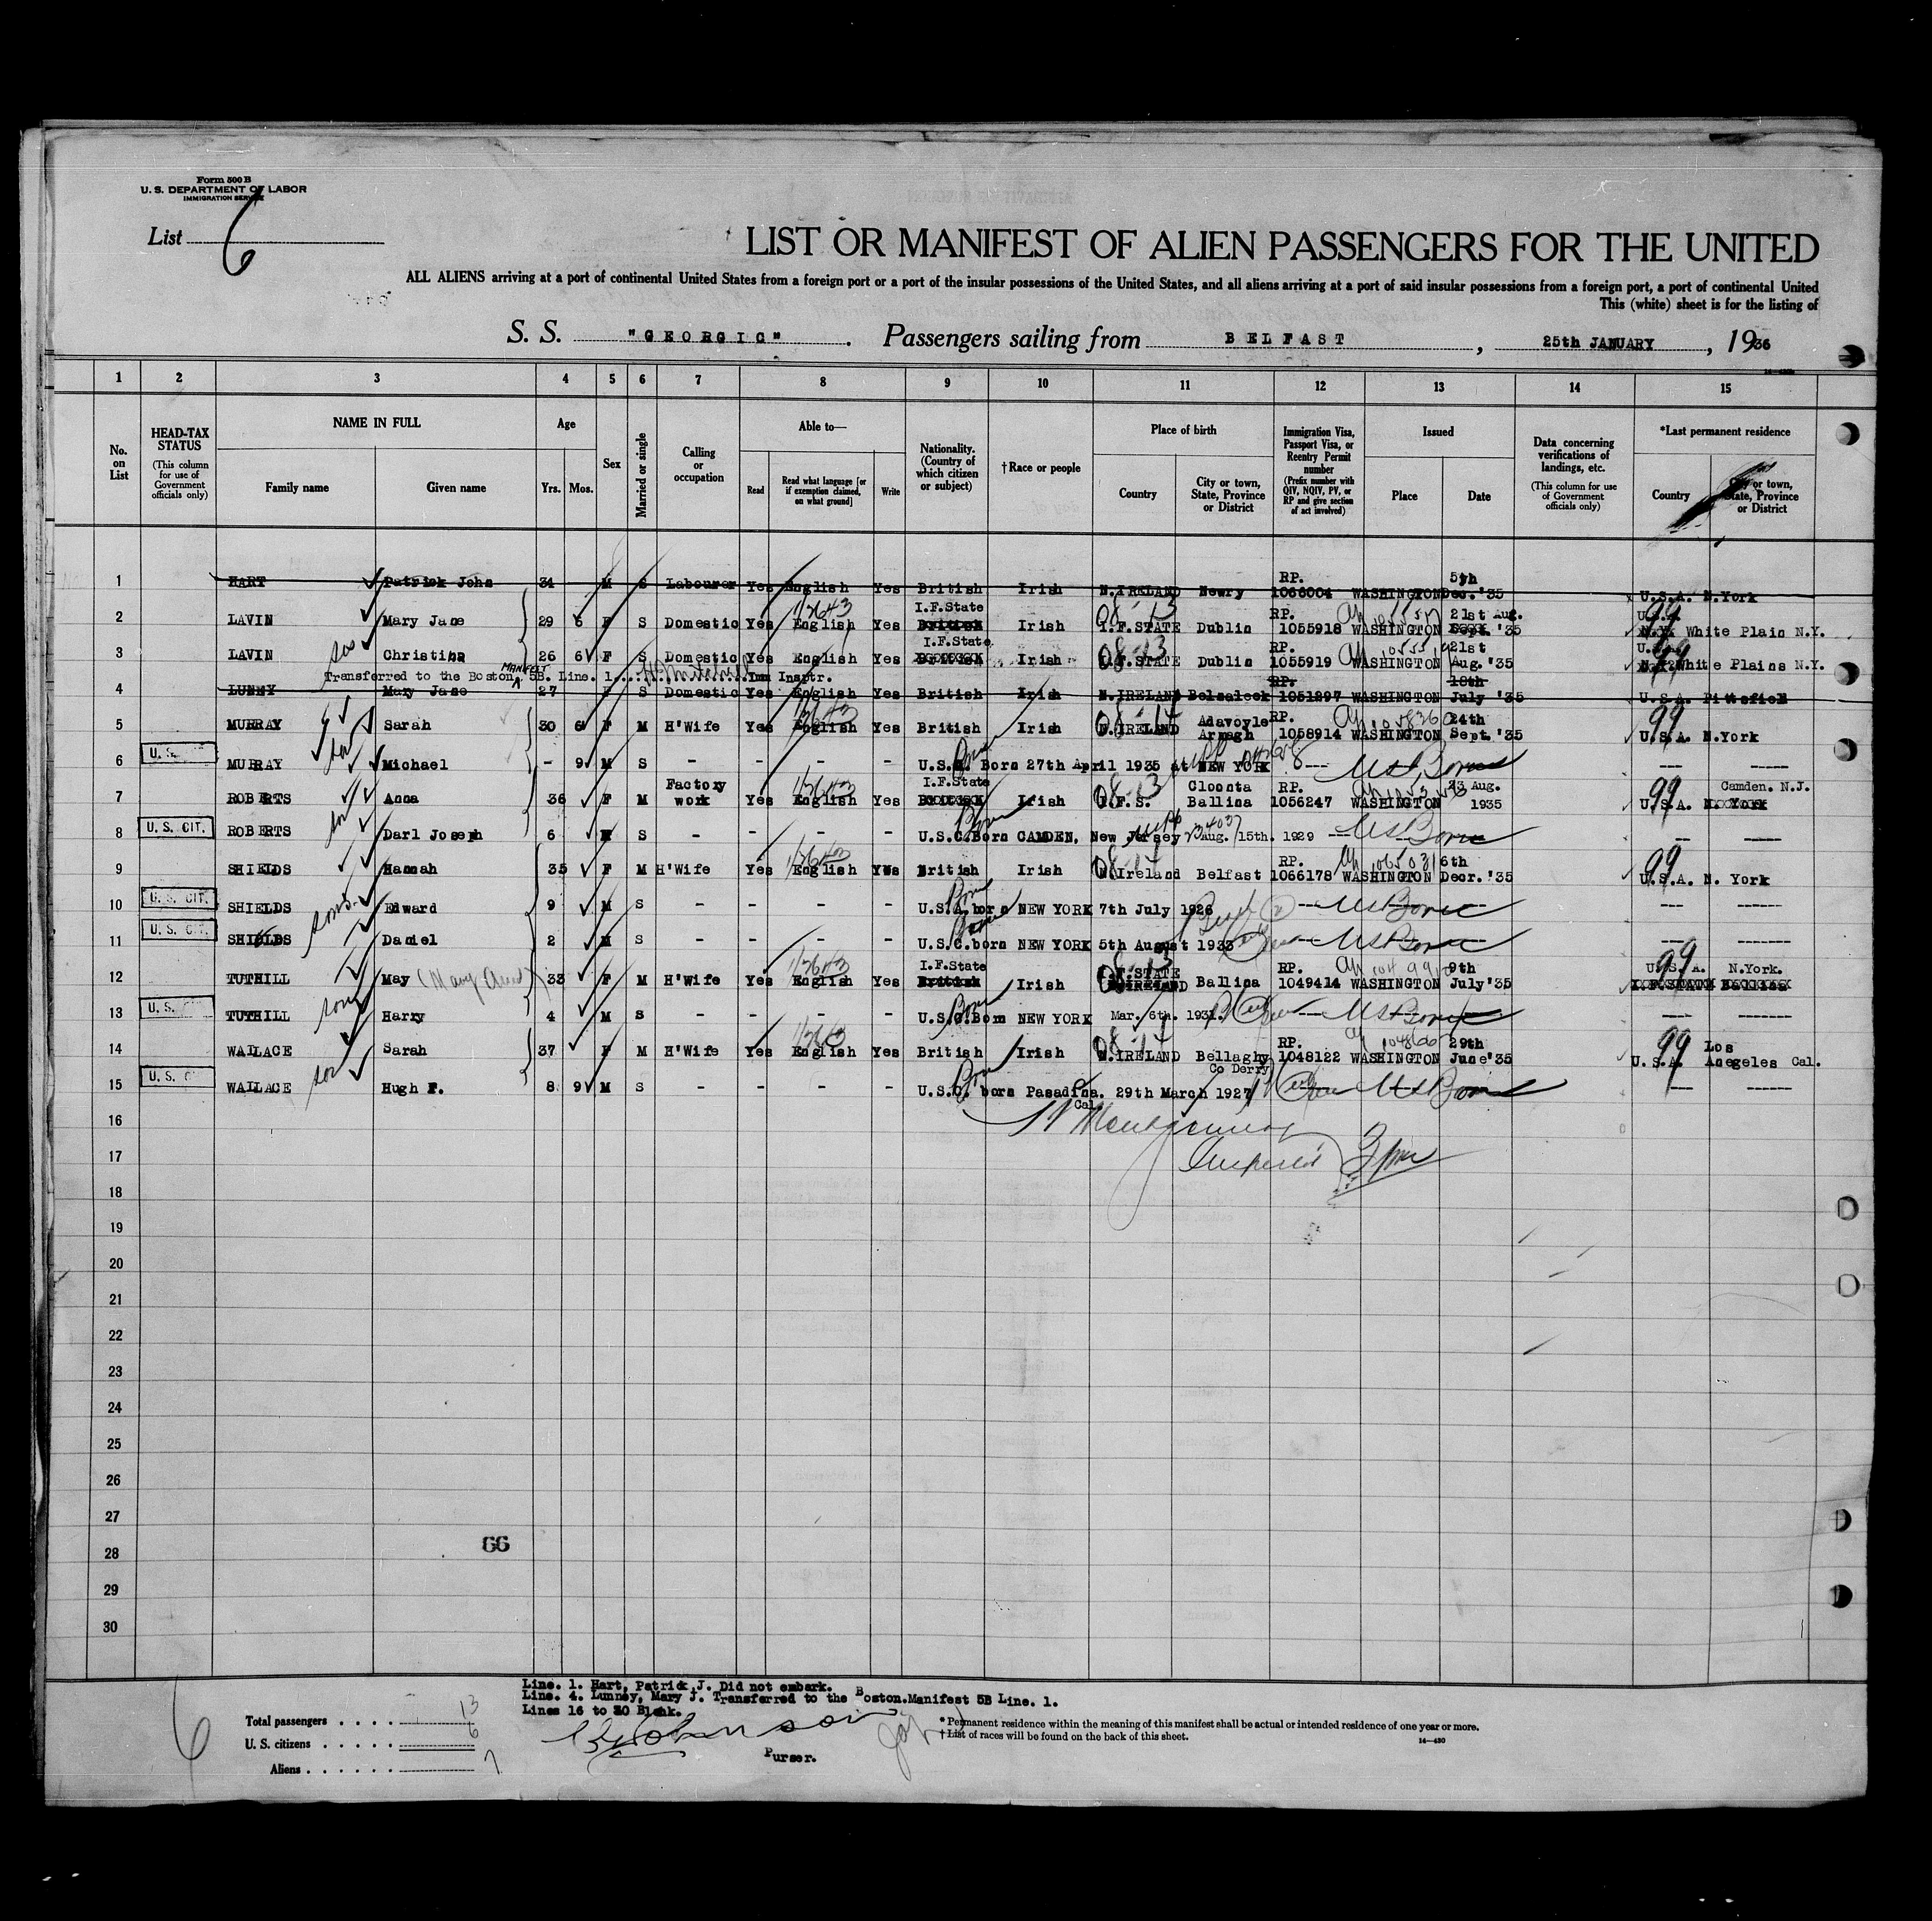 Form 500 B
U. S. DEPARTMENT OF LABOR
IMMIGRATION SERVICE
List 6
LIST OR MANIFEST OF ALIEN PASSENGERS FOR THE UNITED
ALL ALIENS arriving at a port of continental United States from a foreign port or a port of the insular possessions of the United States, and all aliens arriving at a port of said insular possessions from a foreign port, a port of continental United
This (white) sheet is for the listing of
S. S. "GEORGIC". Passengers sailing from BELFAST, 25th JANUARY, 1936
1 2 3 4 5 6 7 8 9 10 11 12 13 14 15
No. on List
HEAD-TAX STATUS (This column for use of Government officials only)
NAME IN FULL Family name Given name
Age Yrs. Mos.
Sex
Married or single
Calling or occupation
Able to— Read Read what language [or if exemption claimed, on what ground] Write
Nationality. (Country of which citizen or subject)
†Race or people
Place of birth Country City or town, State, Province or District
Immigration Visa, Passport Visa, or Reentry Permit number (Prefix number with QIV, NQIV, PV, or RP and give section of act involved)
Issued Place Date
Data concerning verifications of landings, etc. (This column for use of Government officials only)
*Last permanent residence Country City or town, State, Province or District
1 HART Patrick John 34 M S Labourer Yes English Yes British Irish N.IRELAND Newry RP. 1066004 WASHINGTON 5th Dec.'35 U.S.A. N.York
2 LAVIN Mary Jane 29 6 F S Domestic Yes English Yes I.F.State Irish I.F.STATE Dublin RP. 1055918 WASHINGTON 21st Aug. '35 U.S.A. White Plain N.Y.
3 LAVIN Christina 26 6 F S Domestic Yes English Yes I.F.State Irish I.F.STATE Dublin RP. 1055919 WASHINGTON 21st Aug.'35 White Plains N.Y.
Transferred to the Boston MANIFEST 5B. Line. 1. Imm Insptr.
4 LUNNY Mary Jane 27 F S Domestic Yes English Yes British Irish N.IRELAND Belcaleek RP. 1051297 WASHINGTON 18th July '35 U.S.A. Pittsfield
5 MURRAY Sarah 30 6 F M H'Wife Yes English Yes British Irish N.IRELAND Adavoyle Armagh RP. 1058914 WASHINGTON 24th Sept.'35 U.S.A. N.York
6 U. S. MURRAY son Michael - 9 M S - - - - U.S.C. Born 27th April 1935 at NEW YORK
7 ROBERTS Anna 36 F M Factory work Yes English Yes I.F.State Irish I.F.S. Cloonta Ballina RP. 1056247 WASHINGTON 23 Aug. 1935 U.S.A. Camden. N.J.
8 U. S. CIT. ROBERTS son Darl Joseph 6 M S - - - - U.S.C.Born CAMDEN, New Jersey Aug. 15th. 1929
9 SHIELDS Hannah 35 F M H'Wife Yes English Yes British Irish N Ireland Belfast RP. 1066178 WASHINGTON 6th Decr.'35 U.S.A. N. York
10 U. S. CIT. SHIELDS sons Edward 9 M S - - - - U.S.A.born NEW YORK 7th July 1926
11 U. S. CIT. SHIELDS Daniel 2 M S - - - - U.S.C.born NEW YORK 5th August 1933
12 TUTHILL May (Mary Ann) 33 F M H'Wife Yes English Yes I.F.State Irish I.F.STATE Ballina RP. 1049414 WASHINGTON 9th July'35 U.S.A. N.York.
13 U. S. TUTHILL son Harry 4 M S - - - - U.S.C.Born NEW YORK Mar. 6th. 1931.
14 WALLACE Sarah 37 F M H'Wife Yes English Yes British Irish N.IRELAND Bellaghy Co Derry RP. 1048122 WASHINGTON 29th June'35 U.S.A. Los Angeles Cal.
15 U. S. C WALLACE son Hugh F. 8 9 M S - - - - U.S.C. born Pasadina. Cal. 29th March 1927
16
17
18
19
20
21
22
23
24
25
26
27
28
29
30
66
Line. 1. Hart, Patrick J. Did not embark.
Line. 4. Lunney, Mary J. Transferred to the Boston.Manifest 5B Line. 1.
Lines 16 to 30 Blank.
Purser.
6
Total passengers . . . . 13
U. S. citizens . . . . . 6
Aliens . . . . . . 7
* Permanent residence within the meaning of this manifest shall be actual or intended residence of one year or more.
† List of races will be found on the back of this sheet.
14—430